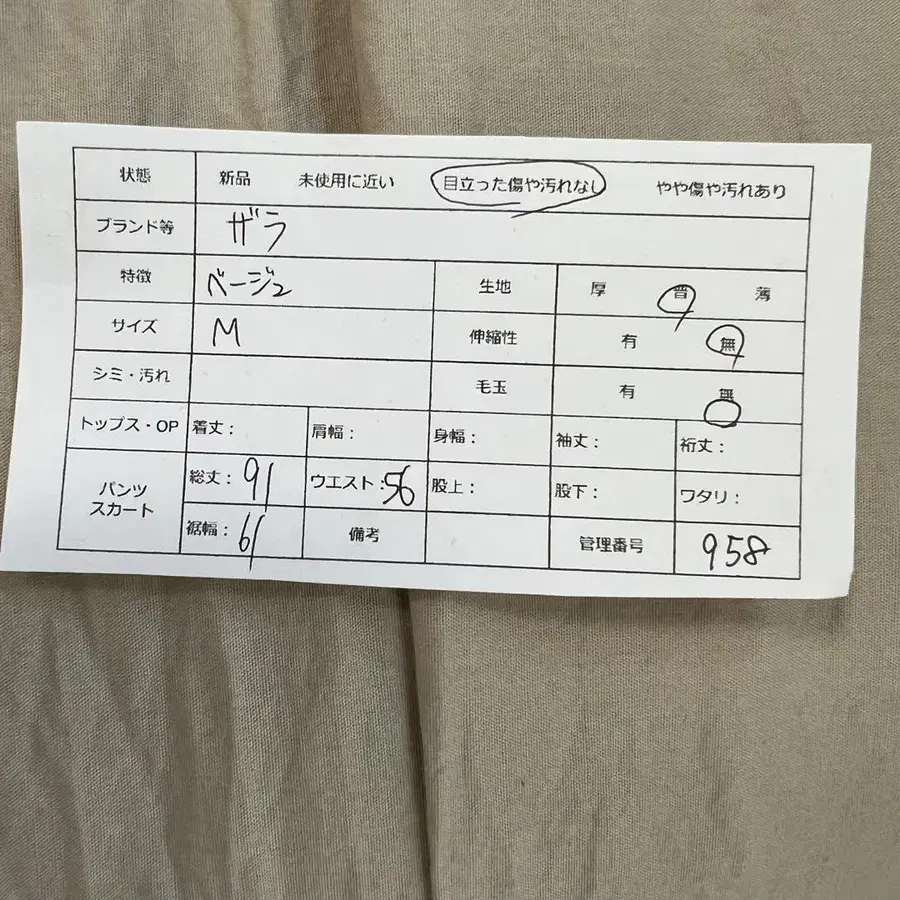 状態 新品 未使用に近い 目立った傷や汚れなし やや傷や汚れあり
ブランド等 ザラ
特徴 ベージュ 生地 厚 普 薄
サイズ M 伸縮性 有 無
シミ・汚れ 毛玉 有 無
トップス・OP 着丈: 肩幅: 身幅: 袖丈: 裄丈:
パンツ スカート 総丈:91 ウエスト:56 股上: 股下: ワタリ:
裾幅:61 備考 管理番号 958